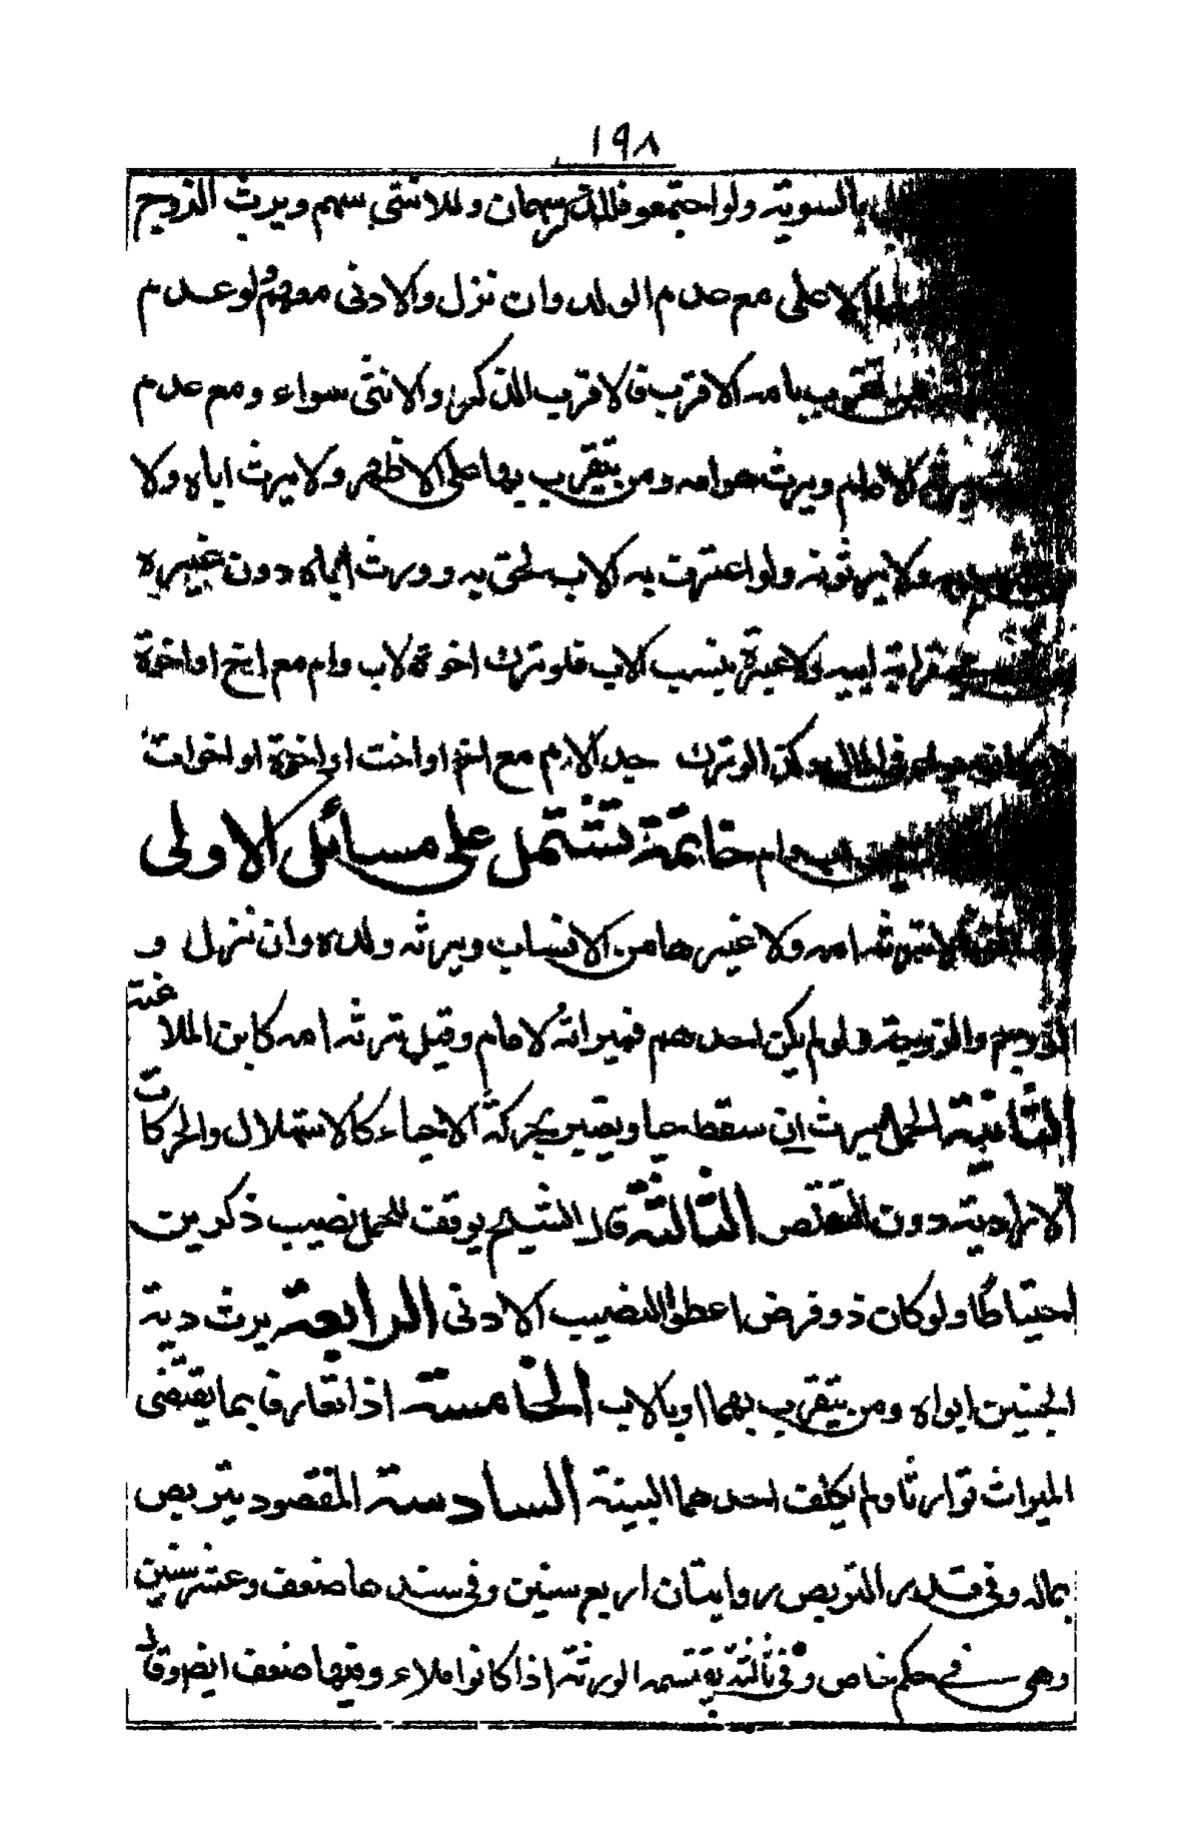 ١٩٨
بالسوية ولو اجتمعو فللذكر سهمان وللانثى سهم ويرث الزوج
الاعلى مع عدم الولد وان نزل والادنى معهم ولو عدم
يتقرب بامه الاقرب فالاقرب الذكر والانثى سواء ومع عدم
يرثه الامام ويرث هو امه ومن يتقرب بها على الاظهر ولا يرث اباه ولا
ولا يرثونه ولو اعترف به الاب لحق به وورث اباه دون غيره
قرابة ابيه ولا عبرة بنسب الاب فلو ترك اخوة لاب وام مع اخ او اخوة
المال وكذا لو ترك جد الام مع اخ او اخت او اخوة او اخوات
اب وام خاتمة تشتمل على مسائل الاولى
لا ترثه امه ولا غيرها من الانساب ويرثه ولده وان نزل و
الزوج والزوجة ولو لم يكن احدهم فميراثه لامام وقيل ترثه امه كابن الملاعنة
الثانية الحمل يرث ان سقط حيا ويعتبر بحركة الاحياء كالاستهلال والحركات
الارادية دون التقلص الثالثة قال الشيخ يوقف للحمل نصيب ذكرين
احتياطا ولو كان ذو فرض اعطوا النصيب الادنى الرابعة يرث دية
الجنين ابواه ومن يتقرب بهما او بالاب الخامسة اذا تعارفا بما يقتضى
الميراث توارثا ولم يكلف احدهما البينة السادسة المفقود يتربص
بماله وفى قدر التربص روايتان اربع سنين وفى سندها ضعف وعشر سنين
وهى فى حكم خاص وفى ثالثة يقتسمه الورثة اذا كانوا ملاء وفيها ضعف ايضا وقال